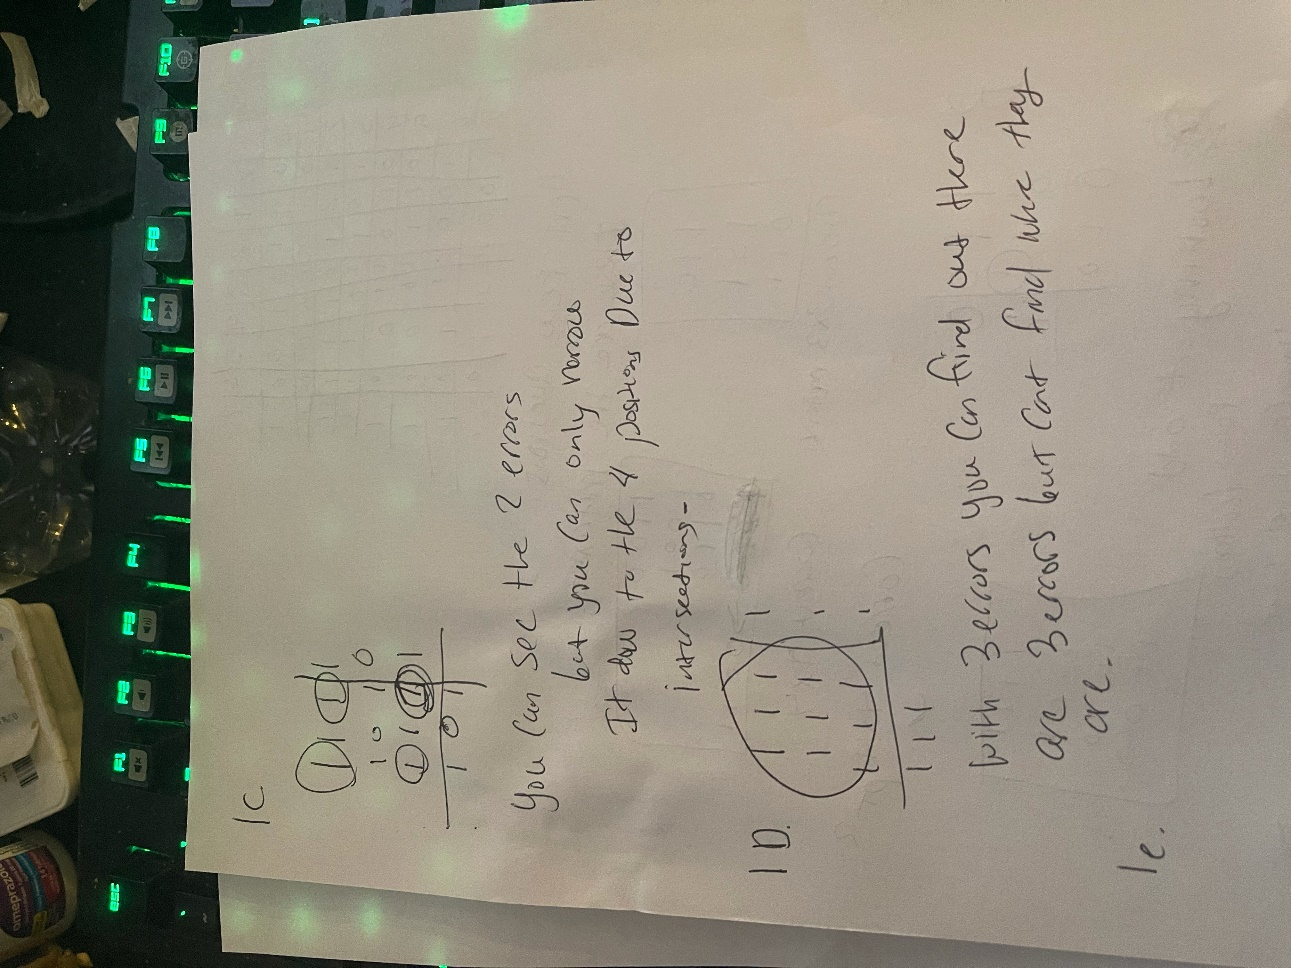 1c
1 1 1 | 1
1 0 1 | 0
1 1 1 | 1
1 0 1
You can see the 2 errors
but you can only narrow
It dow to the 4 positions Due to
intersections-
1D.
1 1 1 | 1
1 1 1 | 1
1 1 1 | 1
1 1 1
with 3 errors you can find out there
are 3 errors but cant find where they
are.
1e.
esc
F1
F2
F3
F4
F5
F6
F7
F8
F9
F10
omeprazole